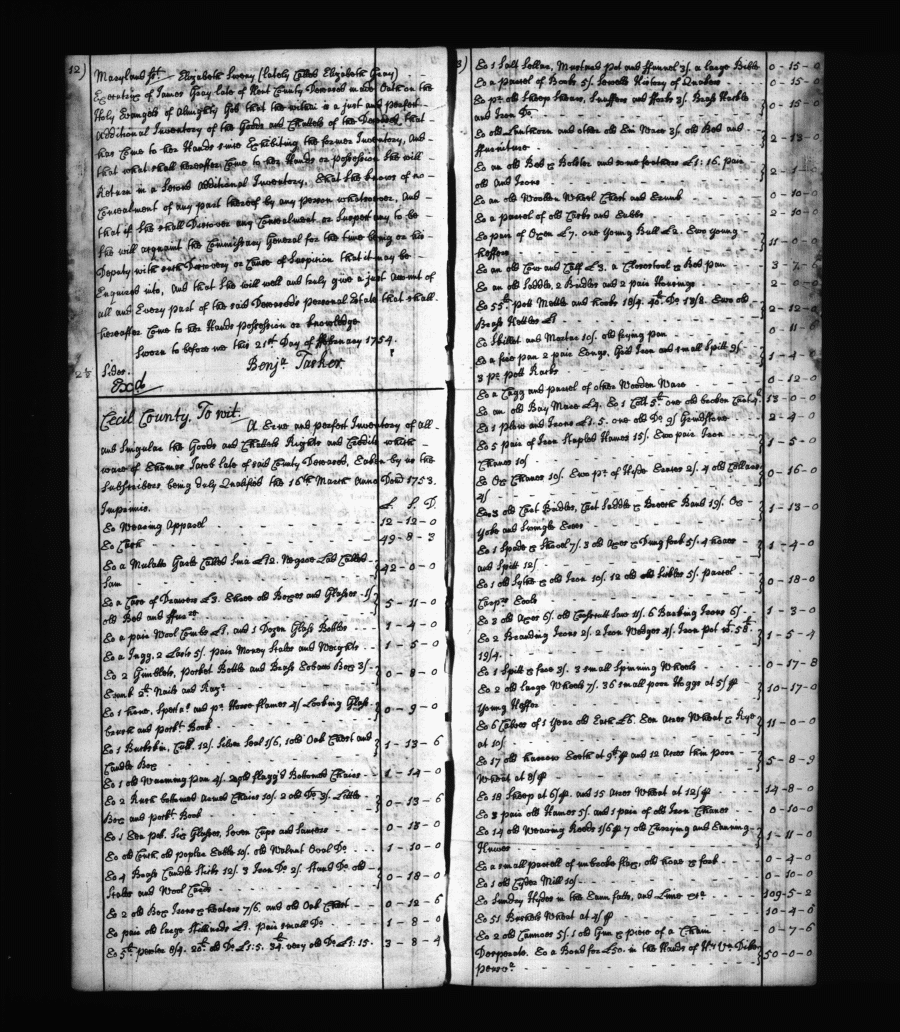 12)
Maryland Sct. Elizabeth Lowry (lately Called Elizabeth Gray)
Executrix of James Gray late of Kent County Deceased made Oath on the
Holy Evangels of Almighty God that the within is a just and perfect
Additional Inventory of the Goods and Chattels of the Deceased, that
has Come to her Hands since Exhibiting the former Inventory, And
that what shall hereafter Come to her Hands or possession she will
Return in a Second Additional Inventory. That she knows of no
Concealment of any part thereof by any person whatsoever, And
that if she shall Discover any Concealment or Suspect any to be
She will acquaint the Commissary General for the time being or his
Deputy with such Discovery or Cause of Suspicion that it may be
Enquired into, And that she will well and truly give a just Account of
all and Every part of the said Deceaseds personal Estate that shall
hereafter Come to her Hands possession or knowledge
Sworn to before me this 21st Day of ffebruary 1754.
Benja. Tasker
Sides.
Exd
Cecil County. To wit.
A True and perfect Inventory of all
and Singular the Goods and Chattels Rights and Credits which
were of Thomas Jacob late of said County Deceased, Taken by us the
Subscribers being duly Qualified the 16th March Anno Dom 1753.
Imprimis. £ S. D.
To Wearing Apparel 12-12-0
To Cash 49-8-3
To a Mulatto Garle Called Sina £12. Negroe Lad Called
Sam 42-0-0
To a Case of Drawers £3. Three old Boxes and Glasses
old Bed and ffurre 5-11-0
To a pair Wool Combs £1. and 1 Dozen Glass Bottles 1-4-0
To a Jugg, 2 Casks 5/. pair Money Scales and Weights 1-5-0
To 2 Gimblets, pocket Bottle and Brass Tobacco Box 3/.
Trunk Nails and 0-8-0
To 1 hone, and pr. Horse flames 4/ Looking Glass
and pockt. Book 0-9-0
To 1 Buckskin, 12/. Silver Seal 1/6, 1 old Oak Chest and
Candle Box 1-13-6
To 1 old Warming pan 4/. old flagg'd Bottomed Chairs 1-14-0
To 2 Rush bottomed Armed Chairs 10/. 2 old Do. 3/. Little
Box and pockt. Book 0-13-6
To 1 Tea pot, Six Glasses, Seven Cups and Saucers 0-18-0
To old old poplar Table 10/. old Walnut Oval Do. 1-10-0
To 4 Brass Candle Sticks 12/. 3 Iron Do. 2/. Stand Do. old
Scales and Wool Cards 0-18-0
To 2 old Box Irons & heaters 7/6. and old Oak Chest 0-12-6
To pair old large Stilliards £1. pair small Do. 1-8-0
To 5 lb. pewter 8/4. 20 lb. old Do. £1:5. 34 lb. very old Do. £1:15. 3-8-4
3)
To 1 Salt Sellar, Mustard Pot and ffunnel 3/. a large Bible 0-15-0
To a parcel of Books 5/. Sewells History of Quakers 0-15-0
To pr. old Sheep Shears, Snuffers and fforks 3/. Brass Kettle
and Iron Do. 0-15-0
To old Lanthorn and other old Tin Ware 3/. old Bed and
ffurniture 2-13-0
To an old Bed & Bolster and some feathers £1:16. pair
old And Irons 2-1-
To an old Woollen Wheel Chest and Trunk 0-10-0
To a parcel of old Casks and Tubbs 2-10-0
To pair of Oxen £7. one Young Bull £2. Two young
heffers 11-0-0
To an old Cow and Calf £3. a Closestool & Bed pan 3-7-6
To an old Saddle, 2 Bridles and 2 pair Harnings 2-0-0
To 55 lb. pott Mettle and hooks 18/4. Do. 13/8. Two old
Brass Kettles £1 2-12-0
To Skillet and Mortar 10/. old frying pan 0-11-
To a fire pan 2 pair Tongs, Grid Iron and small Spitt 9/
3 pr. pott Racks 1-4-0
To a Cagg and parcel of other Wooden Ware 0-12-0
To an old Bay Mare £4. To 1 Colt one old broken Cart 13-0-0
To 1 Plow and Irons £1.5. one old Do. 9/ Grindstone 2-4-0
To 5 pair of Iron Stapled Hames 15/. Two pair Iron
Chanes 10/ 1-5-0
To Ox Chanes 10/. Two pr. of Hyde Traces 2/. 4 old Collars
4/ 0-16-0
To 3 old Cart Bridles, Cart Saddle & Breech Band 19/. Ox
Yoke and Swingle Trees 1-13-0
To 1 Spade & Shovel 7/. 3 old Axes & Dung fork 5/. 4 hoes
and Spitt 12/ 1-4-0
To 1 old Sythe & old Iron 10/. 12 old old Sickles 5/. parcel
Carprs. Tools 0-18-0
To 3 old Axes 6/. old Crosscutt Saw 11/. 6 Barking Irons 6/ 1-3-0
To 2 Branding Irons 2/. 2 Iron Wedges 4/. Iron pot wt. 58 lb.
19/4. 1-5-4
To 1 Spitt & 3/. 3 small Spinning Wheels 0-17-8
To 2 old large Wheels 7/. 36 small poor Hoggs at 5/ ⅌
Young Heffer 10-17-0
To 6 Calves of 1 Year old Each £6. Ten Acres Wheat & Rye
at 10/. 11-0-0
To 17 old harrows Teeth at 9d ⅌ and 12 Acres thin poor
Wheat at 8/ ⅌ 5-8-9
To 18 Sheep at 6/ ⅌. and 15 Acres Wheat at 12/ ⅌ 14-8-0
To 3 pair old Hames 5/. and 1 pair of old Iron Chanes 0-10-0
To 14 old Weaving Reeds 1/6 ⅌ 7 old Currying and Tanning
Knives 1-11-0
To a small parcell of unbroke flax, old hoes & fork 0-4-0
To 1 old Cyder Mill 10/ 0-10-0
To Sundry Hydes in the Tann fatts, and Lime 109-5-2
To 51 Bushels Wheat at 4/ ⅌ 10-4-0
To 2 old Cannoes 5/. 1 old Gun & piece of a Chain 0-7-6
Desperate. To a Bond for £50. in the Hands of 50-0-0